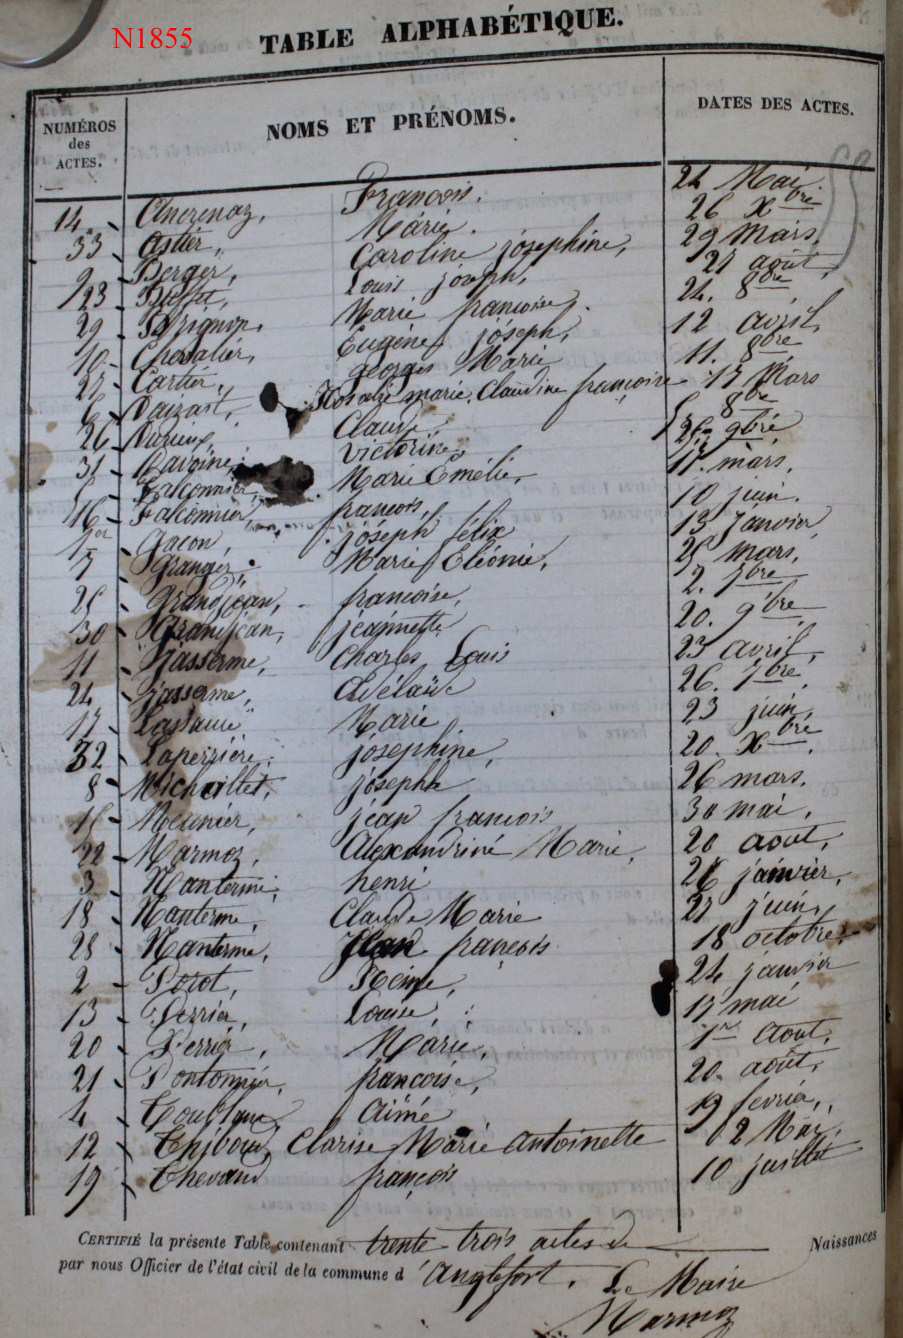 N1855
TABLE ALPHABÉTIQUE.
NUMÉROS des ACTES. NOMS ET PRÉNOMS. DATES DES ACTES.
55
14 François. 24 Mai
33 Astier, Marie. 26 Xbre
9 Berger, Caroline jósephine, 29 Mars,
23 Buffet, Louis jóseph, 21 août,
29 Marie françoise. 24. 8bre
10 Chevalier, Eugène jóseph, 12 avril,
27 Cartier, georges Marie 11. 8bre
6 Rosalie marie Claudine françoise 17 Mars
26 Claude, 8bre
31 Davoine, Victorine 9bre
Falconnier, Marie Emélie, 11. mars,
16 Falconnier françois, 10 juin.
1er Jacon, jóseph félix 13 Janvier
7 Granger Marie Eléonie, 21 mars,
25 Grandjean, françoise, 2. 7bre
30 Grandjean, jeannette 20. 9bre
11 Jasserme, Charles Louis 23 avril,
24 Jasserme, Adélaïde 26. 7bre
17 Marie 23 juin,
32 Laperrière, jósephine, 20. Xbre
8 Michaillet, jósephte 26 mars.
15 Meunier, jéan francois 30 mai,
22 Marmoz, Alexandrine Marie, 20 août,
3 Nanterme, henri 26 janvier,
18 Nanterme, Claude Marie 27 juin,
28 Nanterme, Jean françois 18 octobre,
2 Porot, Reine, 24 janvier
13 Perrier, Louise, 17 mai
20 Perrier, Marie, 1er Août,
21 Pontonnier, françoise, 20. août,
4 Aimé 19 fevrier,
12 Thiboud, Clarise Marie Antoinette 2 Mai,
19 Thevand françois 10 juillet
CERTIFIÉ la présente Table contenant trente trois actes de Naissances
par nous Officier de l'état civil de la commune d'Anglefort. Le Maire
Marmoz